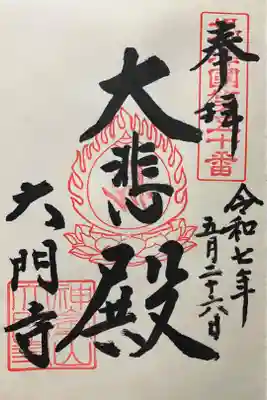 奉拝
大悲殿
令和七年
五月二十六日
大門寺